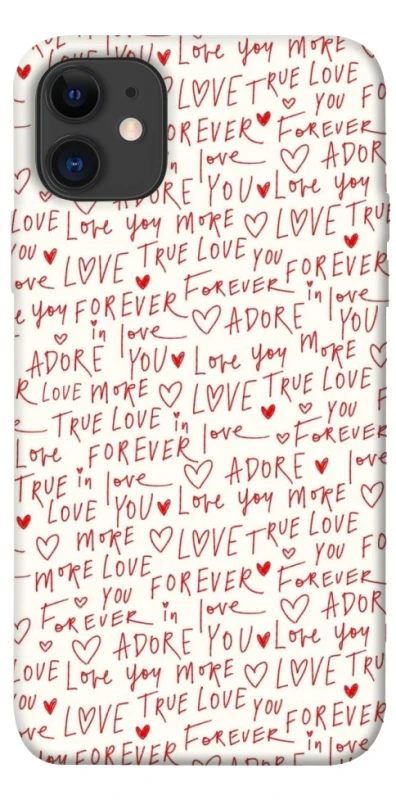 TRUE LOVE YOU Love you MORE
LOVE TRUE LOVE
YOU FO
FOREVER FOREVER
in love ADOR
MORE ADORE YOU Love you
LOVE Love you MORE LOVE TRUE
YOU TRUE LOVE YOU FOREVER
ove LOVE FOREVER in love
e you FOREVER
in love ADORE YOU
ADORE YOU Love you MORE
R LOVE MORE LOVE TRUE LOVE
TRUE LOVE in love YOU F
Love FOREVER FOREVER
TRUE in love ADORE love
LOVE YOU Love you MORE
MORE LOVE TRUE LOVE
MORE LOVE YOU FO
YOU FOREVER FOREVER
FOREVER in love ADOR
ADORE YOU Love you
LOVE Love you MORE LOVE TRU
YOU TRUE LOVE YOU FOREVER
ove LOVE FOREVER in love
you FOREVER